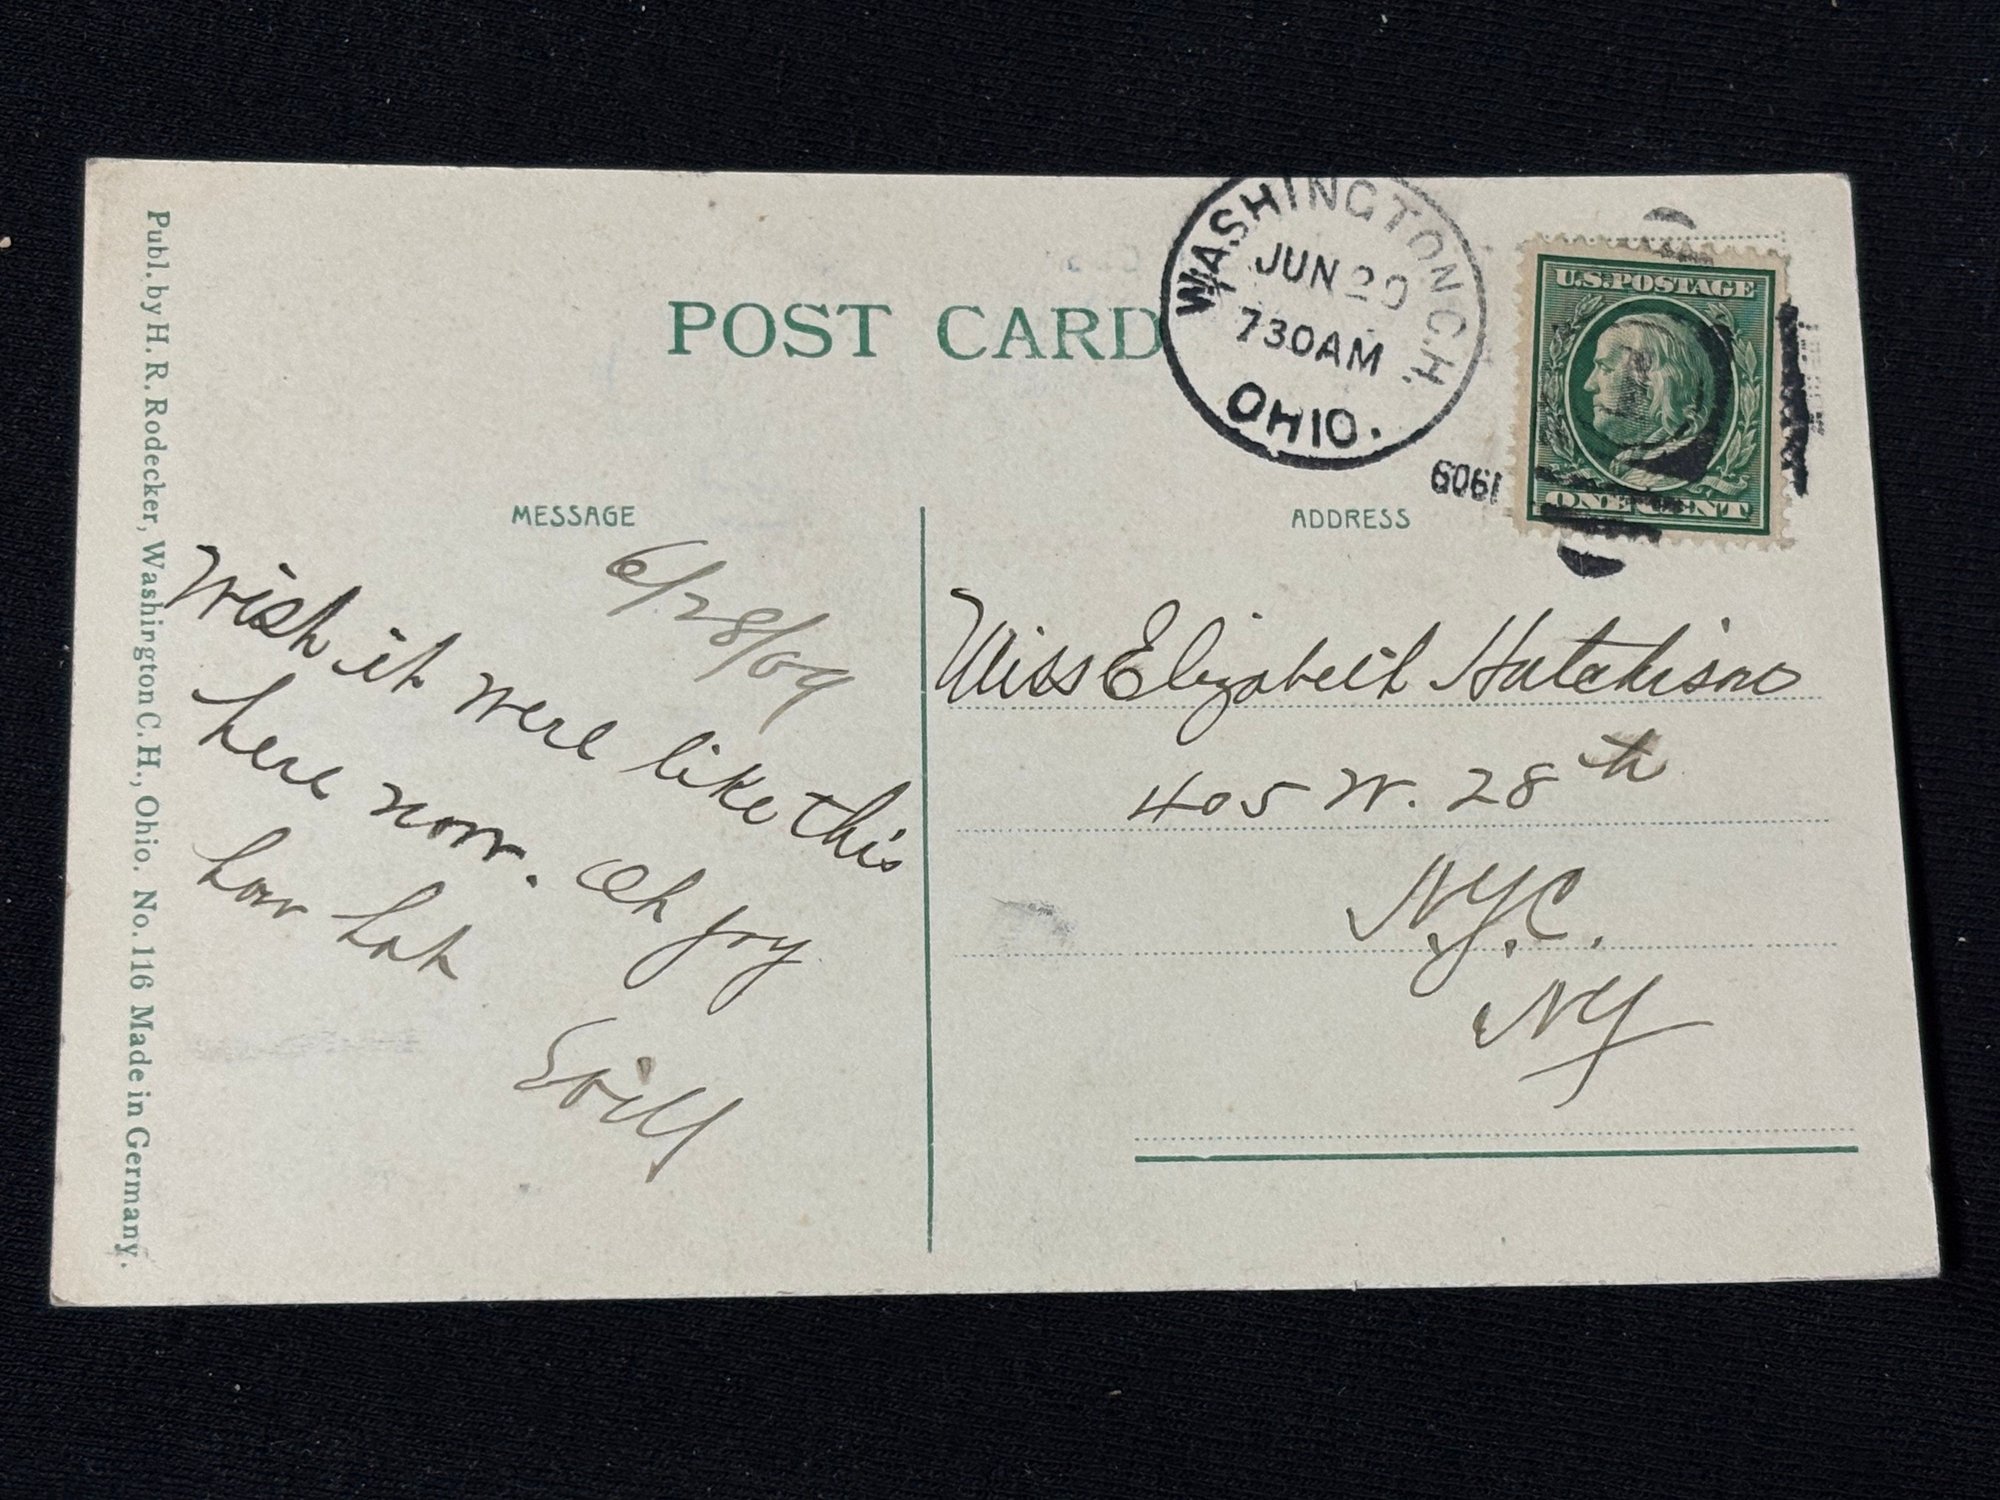 POST CARD
WASHINGTON C.H.
JUN 29
730AM
OHIO.
1909
U.S. POSTAGE
ONE CENT
MESSAGE
6/28/09
Wish it were like this
here now. Oh joy
how hot
Will
ADDRESS
Miss Elizabeth Hutchison
405 W. 28th
N.Y.C.
NY
Publ. by H. R. Rodecker, Washington C. H., Ohio. No. 116 Made in Germany.